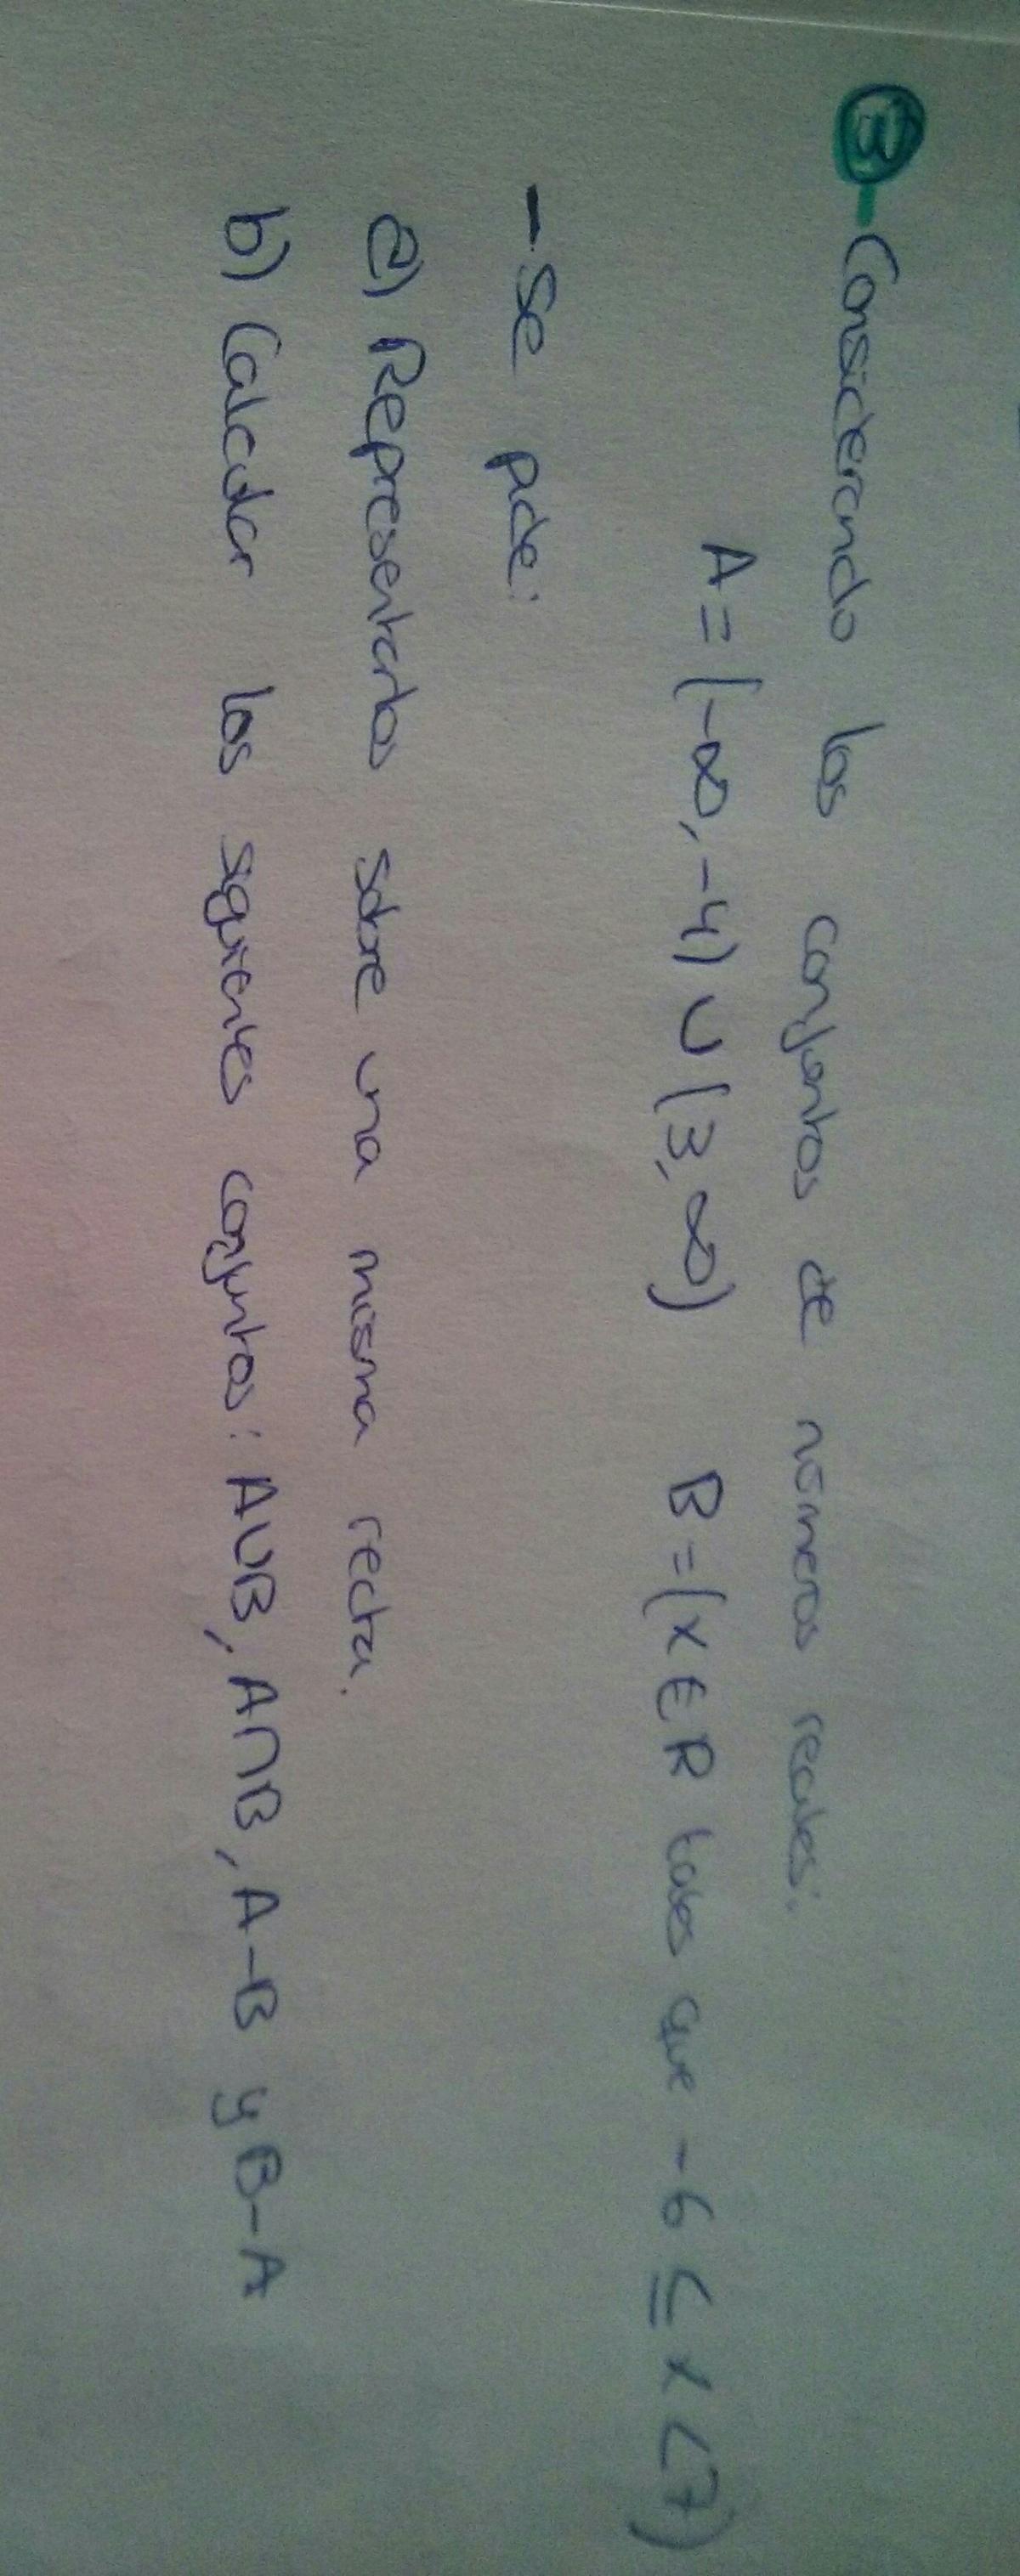 3-Considerando los conjuntos de números reales:
A=(-∞,-4) ∪ (3,∞) B=(x ∈ R tales que -6 ≤ x <7)
-Se pide:
a) Representarlos sobre una misma recta.
b) Calcular los siguientes conjuntos: A∪B, A∩B, A-B y B-A